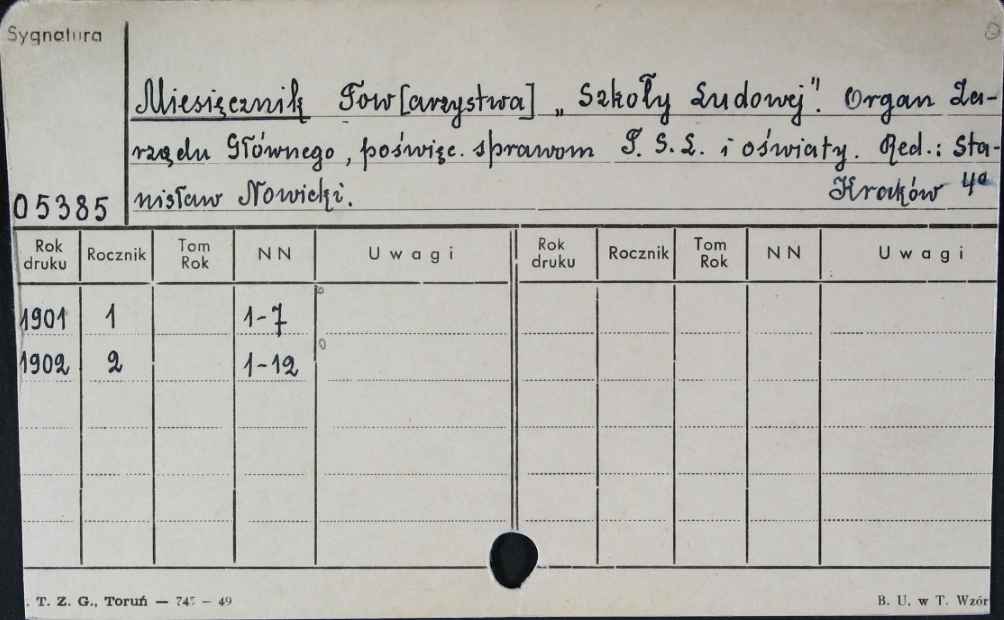 Sygnatura
Miesięcznik Tow[arzystwa] „Szkoły Ludowej". Organ Za-
rządu Głównego, poświęc. sprawom T. S. L. i oświaty. Red.: Sta-
05385 nisław Nowicki. Kraków 4°
Rok druku Rocznik Tom Rok NN Uwagi Rok druku Rocznik Tom Rok NN Uwagi
1901 1 1-7
1902 2 1-12
. T. Z. G., Toruń — 745 — 49 B. U. w T. Wzór